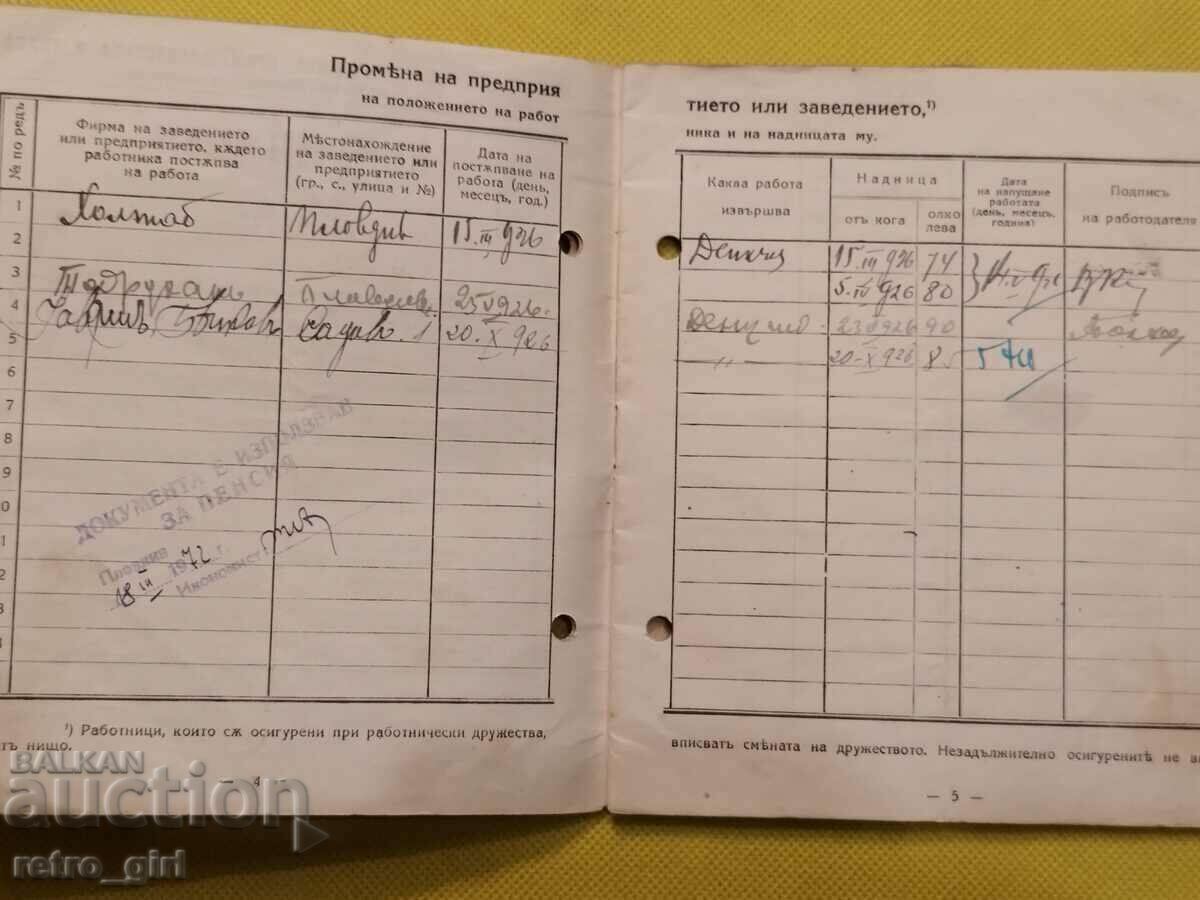 Промѣна на предприя
на положението на работ
№ по редъ
Фирма на заведението
или предприятието, кѫдето
работника постѫпва
на работа
Мѣстонахождение
на заведението или
предприятието
(гр., с., улица и №)
Дата на
постѫпване на
работа (день,
месецъ, год.)
1
Пловдив
15.III 926
2
3
25 V 926.
4
20. X 926
5
6
7
8
9
0
1
2
3
ДОКУМЕНТА Е ИЗПОЛЗВАН
ЗА ПЕНСИЯ
Пловдив
18 III 1972 г.
Икономист:
¹) Работници, които сѫ осигурени при работнически дружества,
тъ нищо.
— 4 —
тието или заведението,¹)
ника и на надницата му.
Каква работа
извършва
Надница
отъ кога
олко
лева
Дата
на напущане
работата
(день, месецъ,
година)
Подписъ
на работодателя
15. III 926 74
5. IV 926 80
23 V 926 90
-"- 20-X 926 85
вписватъ смѣната на дружеството. Незадължително осигуренитѣ не в
— 5 —
BALKAN
auction
retro_girl